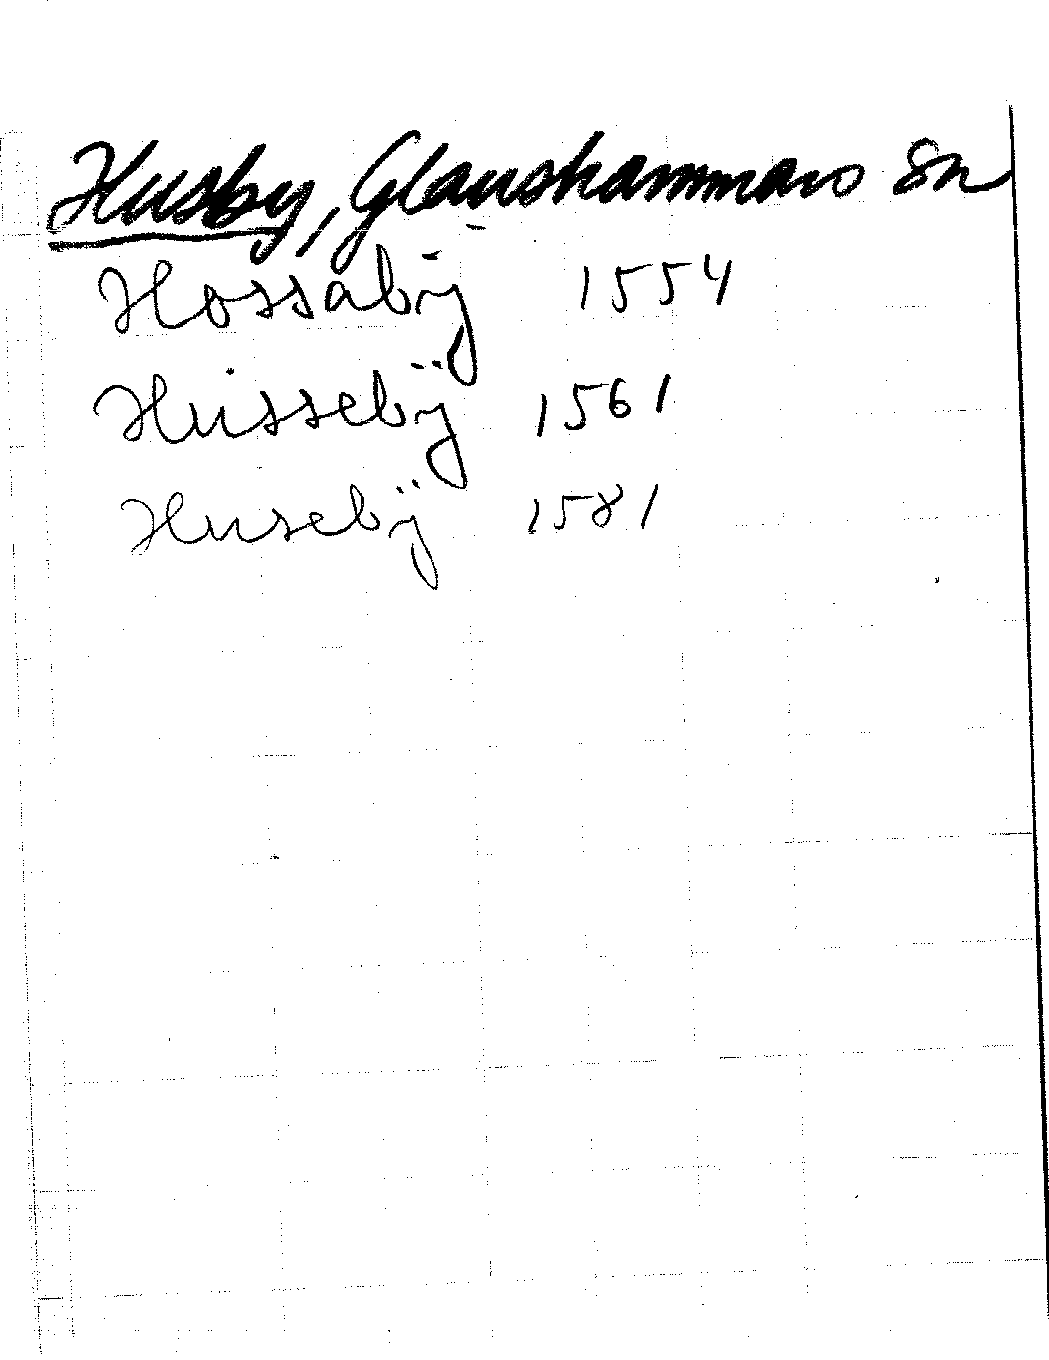 Husby, Glanshammars Sn
Hossabÿ 1554
Hussebÿ 1561
Husebÿ 1581